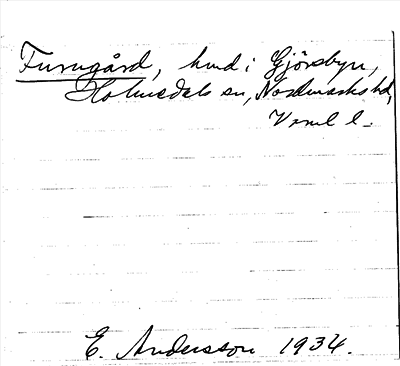 Furugård, hmd i Gjörsbyn,
Holmedals sn, Nordmarks hd,
Verml l.
E. Andersson 1934.